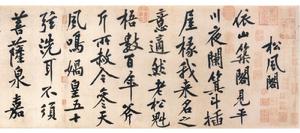 松風閣
依山築閣見平
川夜闌箕斗插
屋椽我來名之
意適然老松魁
梧數百年斧
斤所赦今參天
風鳴媧皇五十
弦洗耳不須
菩薩泉嘉